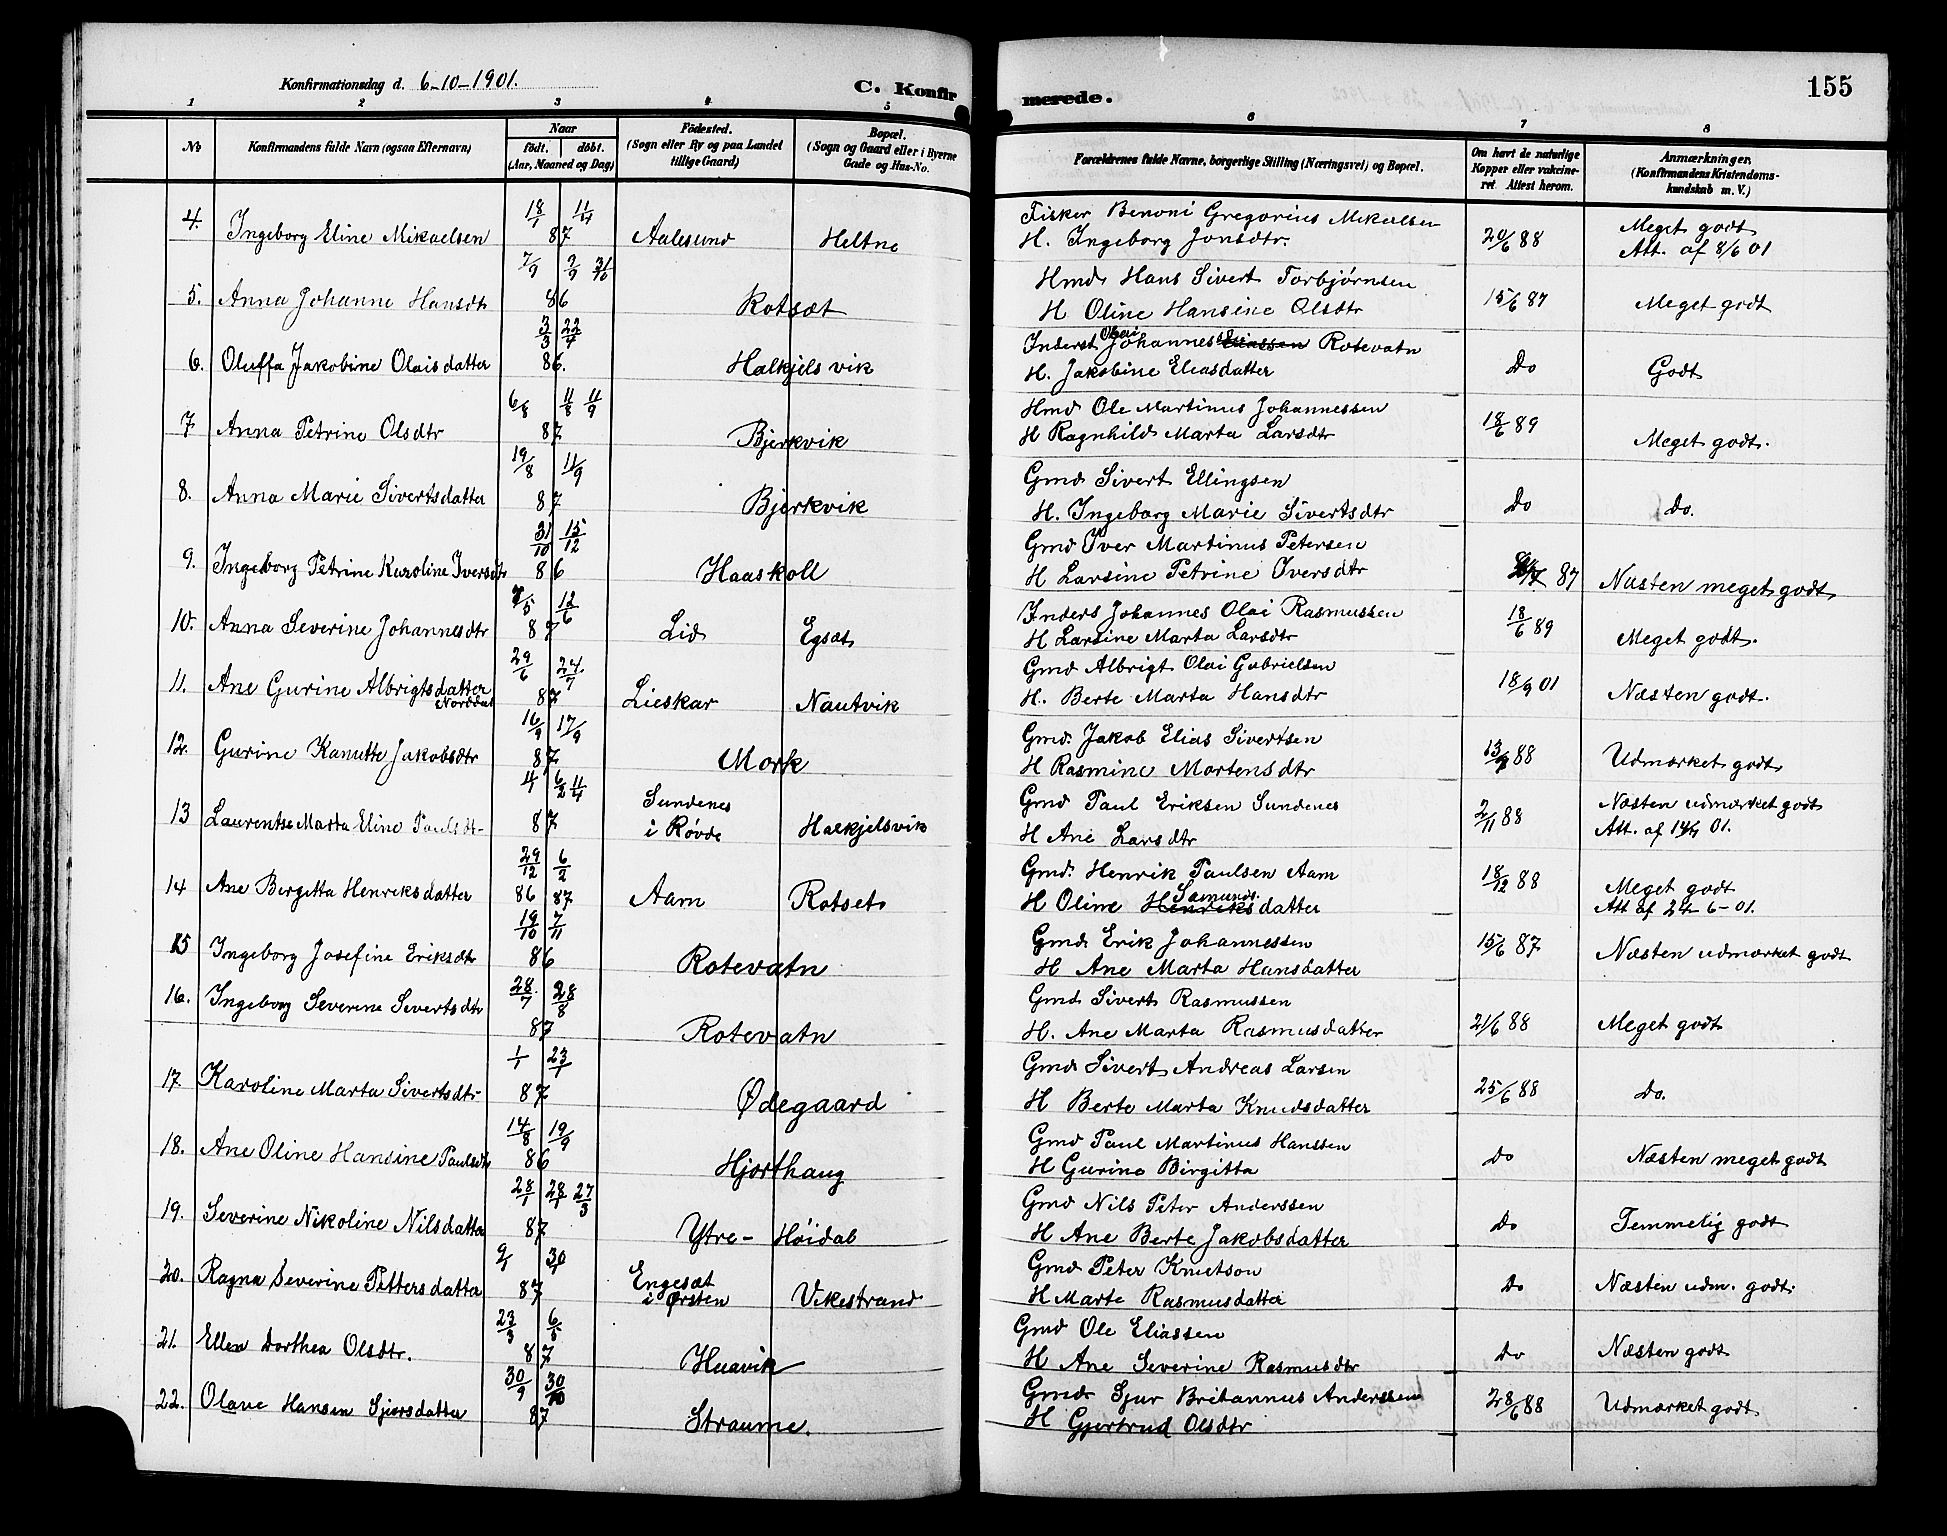 Konfirmationsdag d. 6-10-1901.
C. Konfirmerede.
155
1 2 3 4 5 6 7 8
No
Konfirmandens fulde Navn (ogsaa Efternavn)
Naar
født. døbt.
(Aar, Maaned og Dag)
Födested.
(Sogn eller By og paa Landet
tillige Gaard)
Bopæl.
(Sogn og Gaard eller i Byerne
Gade og Hus-No.
Forældrenes fulde Navne, borgerlige Stilling (Næringsvei) og Bopæl.
Om havt de naturlige
Kopper eller vakcine-
ret. Attest herom.
Anmærkninger.
(Konfirmandens Kristendoms-
kundskab m. V.)
4. Ingeborg Eline Mikaelsen 18/1 11/4 87 Aalesund Heltne
Fisker Benoni Gregorius Mikaelsen
H. Ingeborg Jonsdtr. 20/6 88 Meget godt
Att. af 8/6 01
5. Anna Johanne Hansdtr 7/9 9/9 31/10 86 Rotsæt
Hmd Hans Sivert Torbjørnsen
H Oline Hansine Olsdtr 15/6 87 Meget godt
6. Oluffa Jakobine Olaisdatter 3/3 22/4 86. Halkjelsvik
Inderst Olai Johannes Eliassen Rotevatn
H. Jakobine Eliasdatter Do Godt
7 Anna Petrine Olsdtr 6/8 11/8 11/9 87 Bjerkvik
Hmd Ole Martinus Johannessen
H Ragnhild Marta Larsdtr 18/6 89 Meget godt.
8. Anna Marie Sivertsdatter 19/8 11/9 87 Bjerkvik
Gmd Sivert Ellingsen
H. Ingeborg Marie Sivertsdtr Do Do.
9. Ingeborg Petrine Karoline Iversdtr 31/10 15/12 86 Haaskoll
Gmd Iver Martinus Petersen
H Larsine Petrine Iversdtr 87 Næsten meget godt
10. Anna Severine Johannesdtr /5 12/6 87 Lid Egsæt
Inders Johannes Olai Rasmussen
H Larsine Marta Larsdtr 18/6 89 Meget godt.
11. Ane Gurine Albrigtsdatter 29/6 24/7 87 Lieskar Nautvik
Norddal
Gmd Albrigt Olai Gabrielsen
H. Berte Marta Hansdtr 18/9 01 Næsten godt.
12. Gurine Kanutte Jakobsdtr 16/9 17/9 87 Mork
Gmd. Jakob Elias Sivertsen
H Rasmine Mortensdtr 13/ 88 Udmærket godt
13 Laurentse Marta Eline Paulsdt- 4/ 6/2 11/4 87 Sundenes
i Røvde Halkjelsvik
Gmd Paul Eriksen Sundenes
H Ane Larsdtr 2/11 88 Næsten udmærket godt
Att. af 01.
14 Ane Bergitta Henriksdatter 29/12 86 6/2 87 Aam Rotset
Gmd. Henrik Paulsen Aam
H Oline Henriks Sæmundsdatter 18/12 88 Meget godt
Att af 24-6-01.
15 Ingeborg Josefine Eriksdtr 19/10 7/11 86 Rotevatn
Gmd Erik Johannessen
H Ane Marta Hansdatter 15/6 87 Næsten udmærket godt
16. Ingeborg Severine Sivertsdtr 28/7 28/8 87 Rotevatn
Gmd Sivert Rasmussen
H. Ane Marta Rasmusdatter 21/6 88 Meget godt
17. Karoline Marta Sivertsdtr 1/1 23/1 87 Ødegaard
Gmd Sivert Andreas Larsen
H Berte Marta Knudsdatter 25/6 88 Do.
18. Ane Oline Hansine Paulsdtr 14/8 19/9 86 Hjorthaug
Gmd Paul Martinus Hanssen
H Gurine Birgitta Do Næsten meget godt
19. Severine Nikoline Nilsdatter 28/1 28/1 27/3 87 Ytre-Höidal
Gmd Nils Peter Anderssen
H Ane Berte Jakobsdatter Do Temmelig godt
20. Ragna Severine Pettersdatter 9/1 30/ 87 Engesæt
i Ørsten Vikestrand
Gmd Peter Knutson
H Marte Rasmusdatter Do Næsten udm. godt.
21. Ellen Dorthea Olsdtr. 23/3 6/5 87 Huavik
Gmd Ole Eliassen
H Ane Severine Rasmusdtr Do Næsten godt
22. Olave Hansen Sjursdatter 30/9 30/10 87 Straume.
Gmd Sjur Britannus Anderssen
H Gjertrud Olsdtr 28/6 88 Udmærket godt